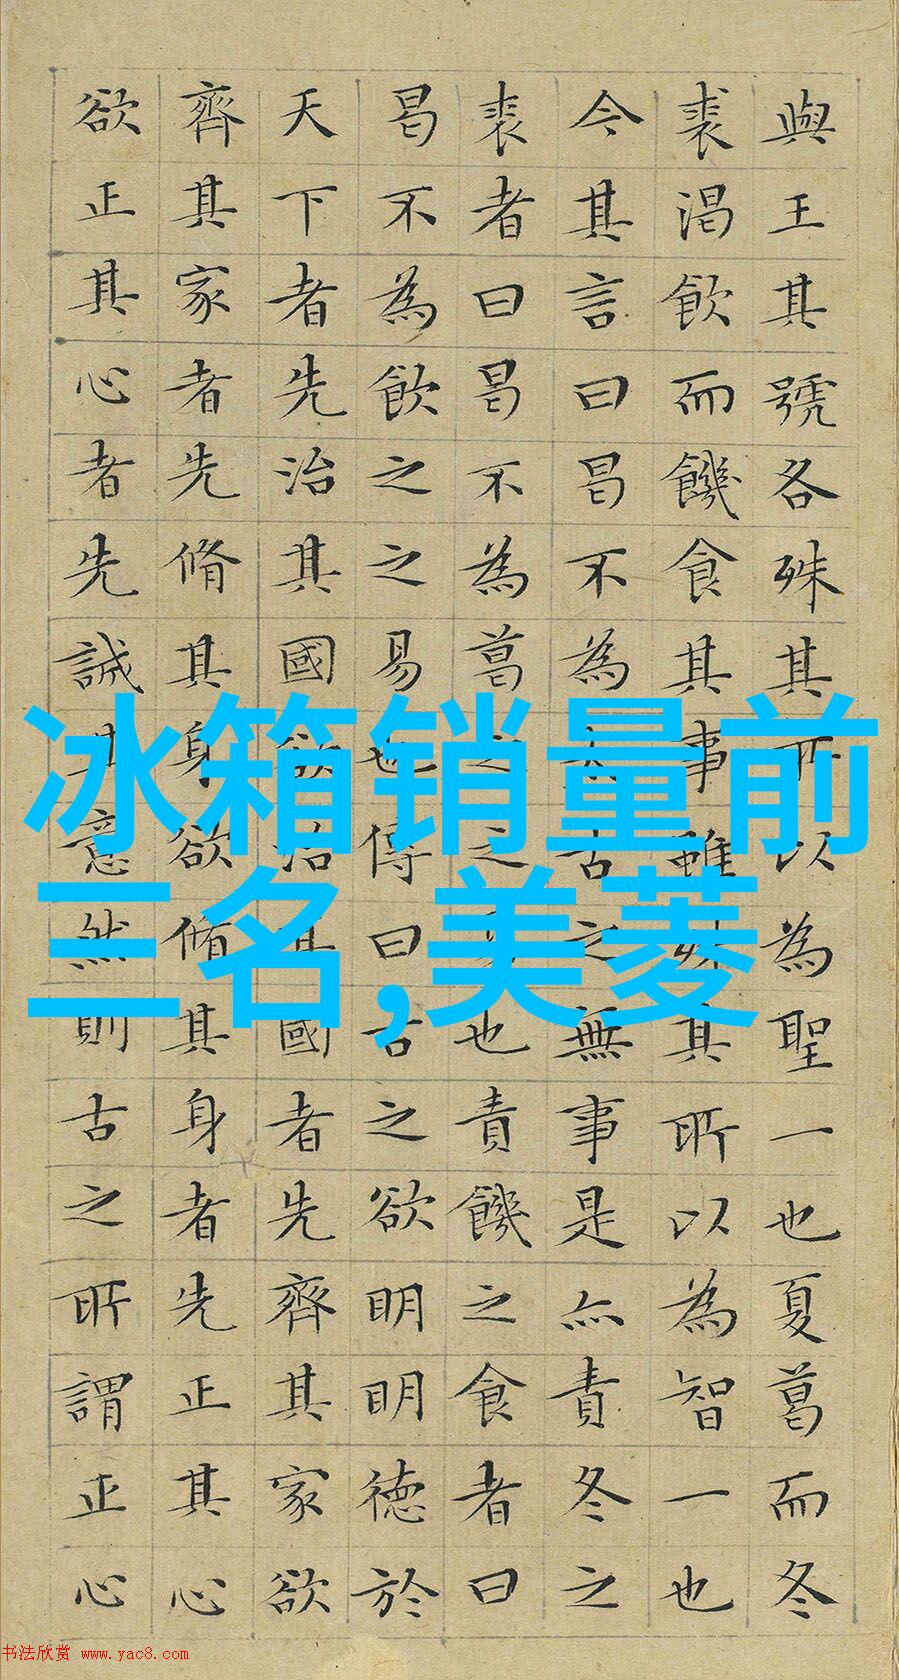 與王其號各殊其所以為聖一也夏葛而冬
裘渴飲而饑食其事雖殊其所以為智一也
今其言曰曷不為太古之無事是亦責冬之
裘者曰曷不為葛之之易也責饑之食者曰
曷不為飲之之易也傳曰古之欲明明德於
天下者先治其國欲治其國者先齊其家欲
齊其家者先脩其身欲脩其身者先正其心
欲正其心者先誠其意然則古之所謂正心
冰箱销量前
三名,美菱
书法欣赏 www.yac8.com